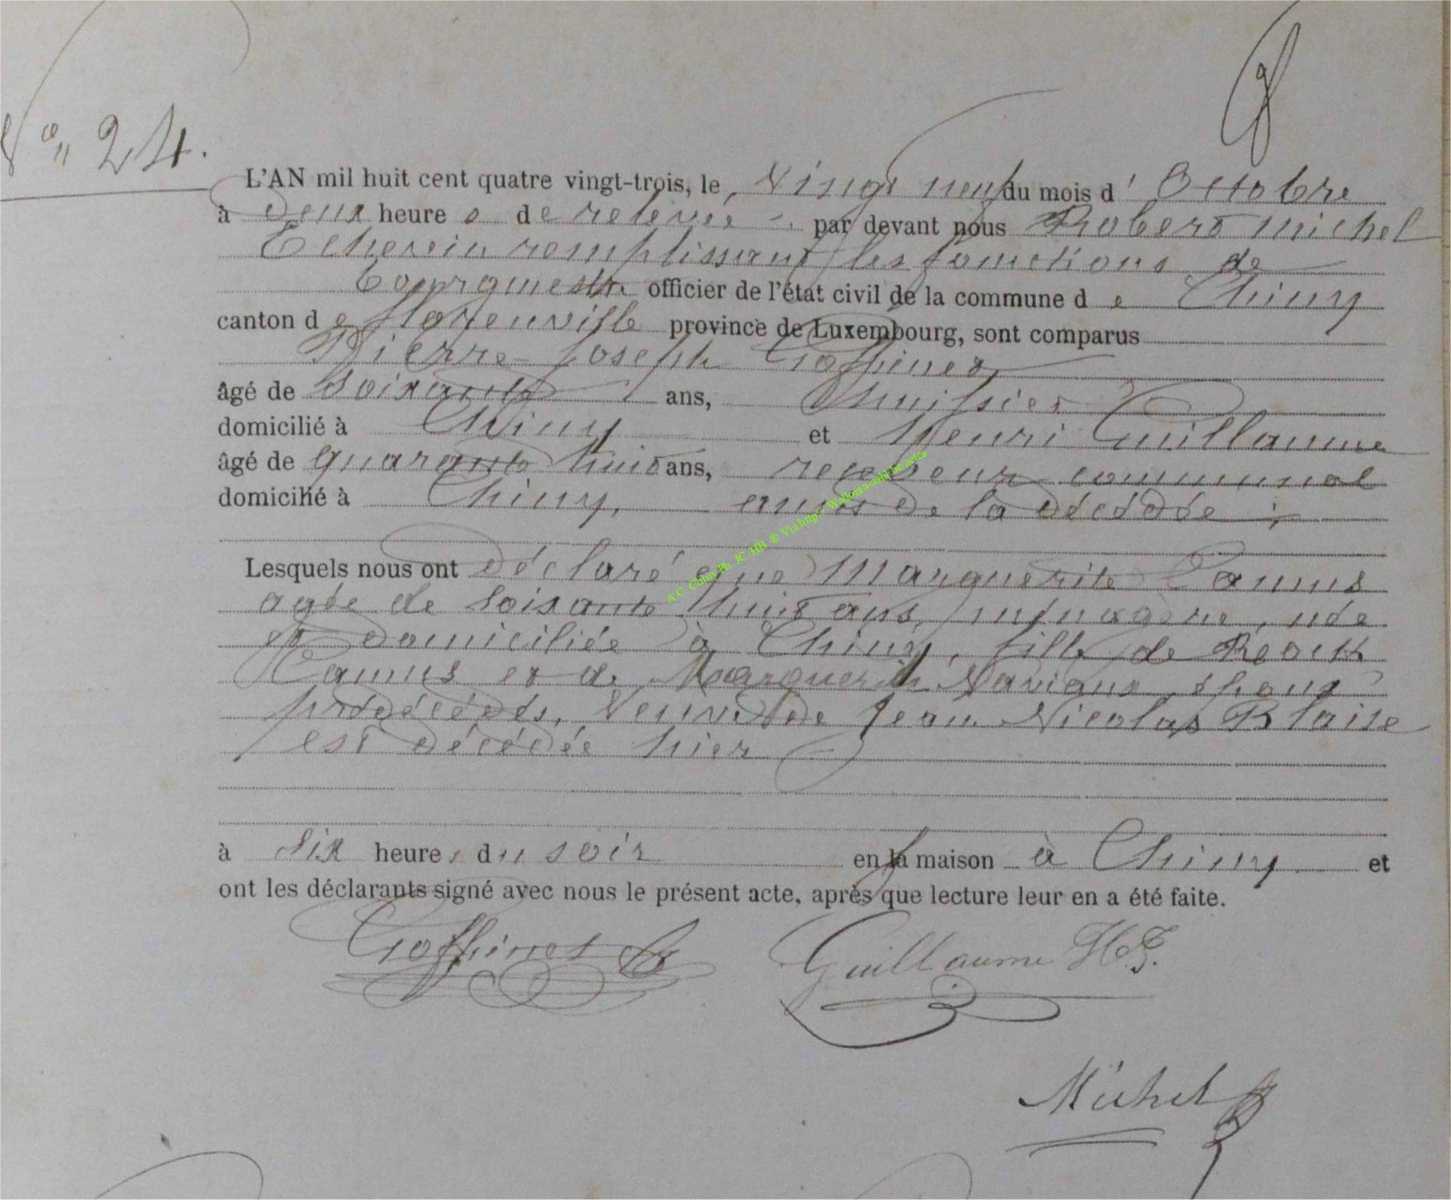 No 24.
L'AN mil huit cent quatre vingt-trois, le Vingt neuf du mois d'Octobre
à deux heures de relevée par devant nous Robert Michel
Echevin remplissant les fonctions de
Bourgmestre officier de l'état civil de la commune de Chiny
canton de florenville province de Luxembourg, sont comparus
Pierre Joseph Goffinet,
âgé de soixante ans, huissier
domicilié à Chiny et Henri Guillaume
âgé de quarante huit ans, receveur communal
domicilié à Chiny, amis de la décédée ;
Lesquels nous ont déclaré que Marguerite Camus
agée de soisante huit ans, ménagère, née
et domiciliée à Chiny, fille de
Camus et de Marguerite époux
prédécédés, Veuve de Jean Nicolas Blaise
est décédée hier
à six heures du soir en la maison à Chiny et
ont les déclarants signé avec nous le présent acte, après que lecture leur en a été faite.
Goffinet Guillaume HJ.
Michel